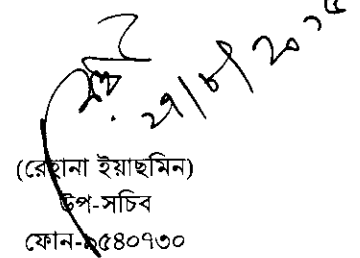 ২৭/৮/২০১৫
(রেহানা ইয়াছমিন)
উপ-সচিব
ফোন-৯৫৪০৭৩০